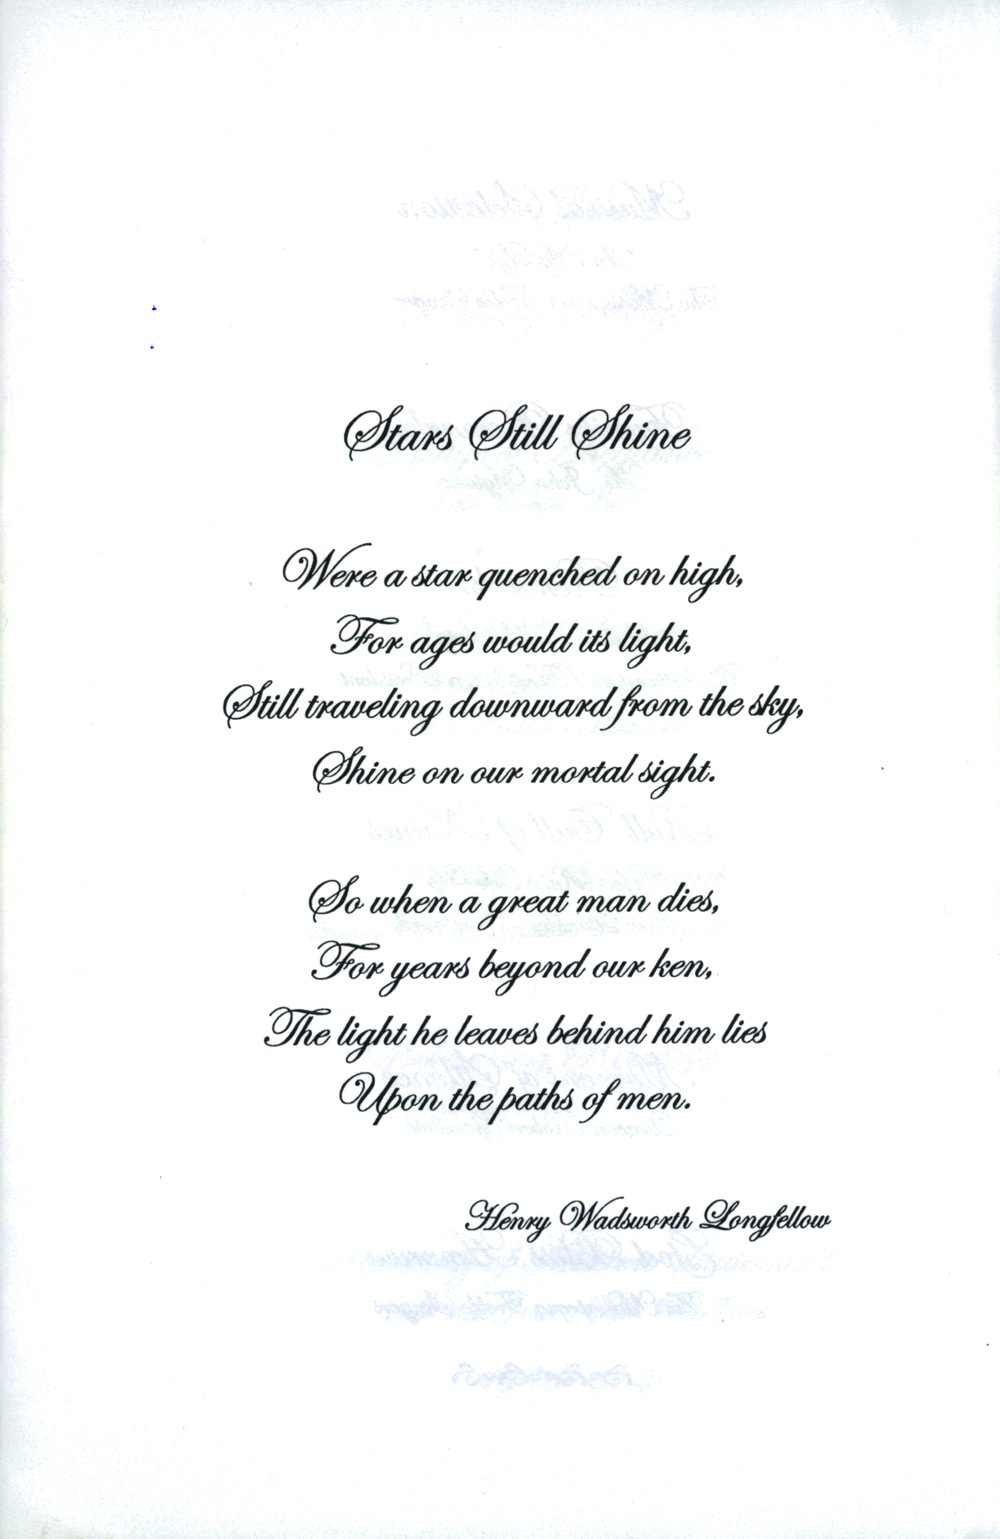 Stars Still Shine
Were a star quenched on high,
For ages would its light,
Still traveling downward from the sky,
Shine on our mortal sight.
So when a great man dies,
For years beyond our ken,
The light he leaves behind him lies
Upon the paths of men.
Henry Wadsworth Longfellow